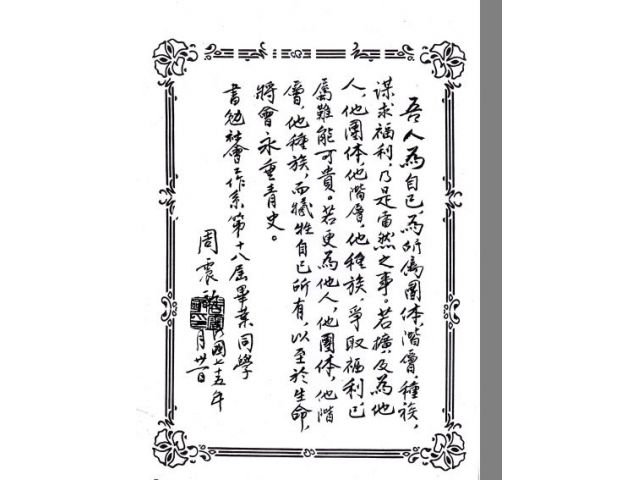 吾人為自己,為所屬團体,階層,種族,
謀求福利,乃是當然之事。若擴及為他
人,他團体,他階層,他種族,爭取福利,已
屬難能可貴。若更為他人,他團体,他階
層,他種族,而犧牲自己所有,以至於生命,
將會永垂青史。
書勉社會工作系第十八屆畢業同學
周震
國七十五年
月